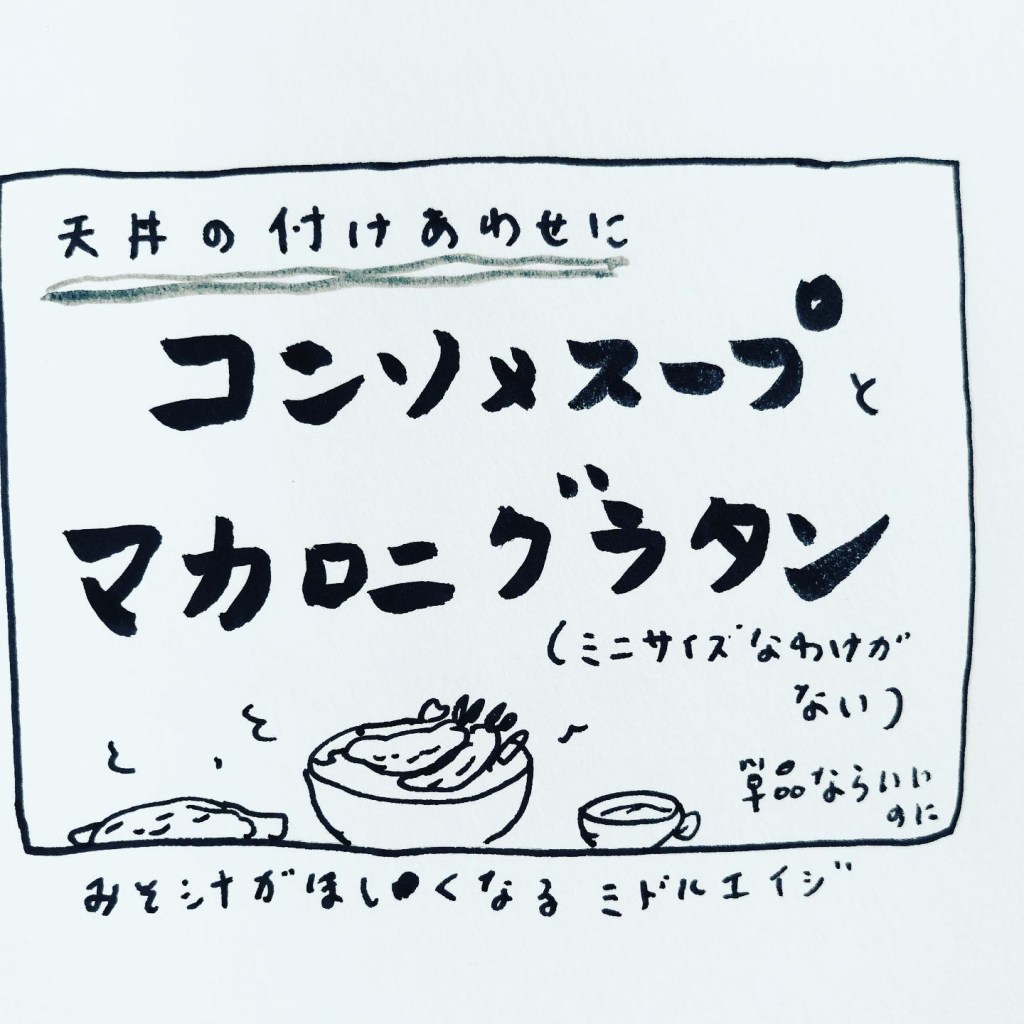 天丼の付けあわせに
コンソメスープと
マカロニグラタン
(ミニサイズなわけが
ない)
単品ならいい
のに
みそシナがほしくなる ミドルエイジ